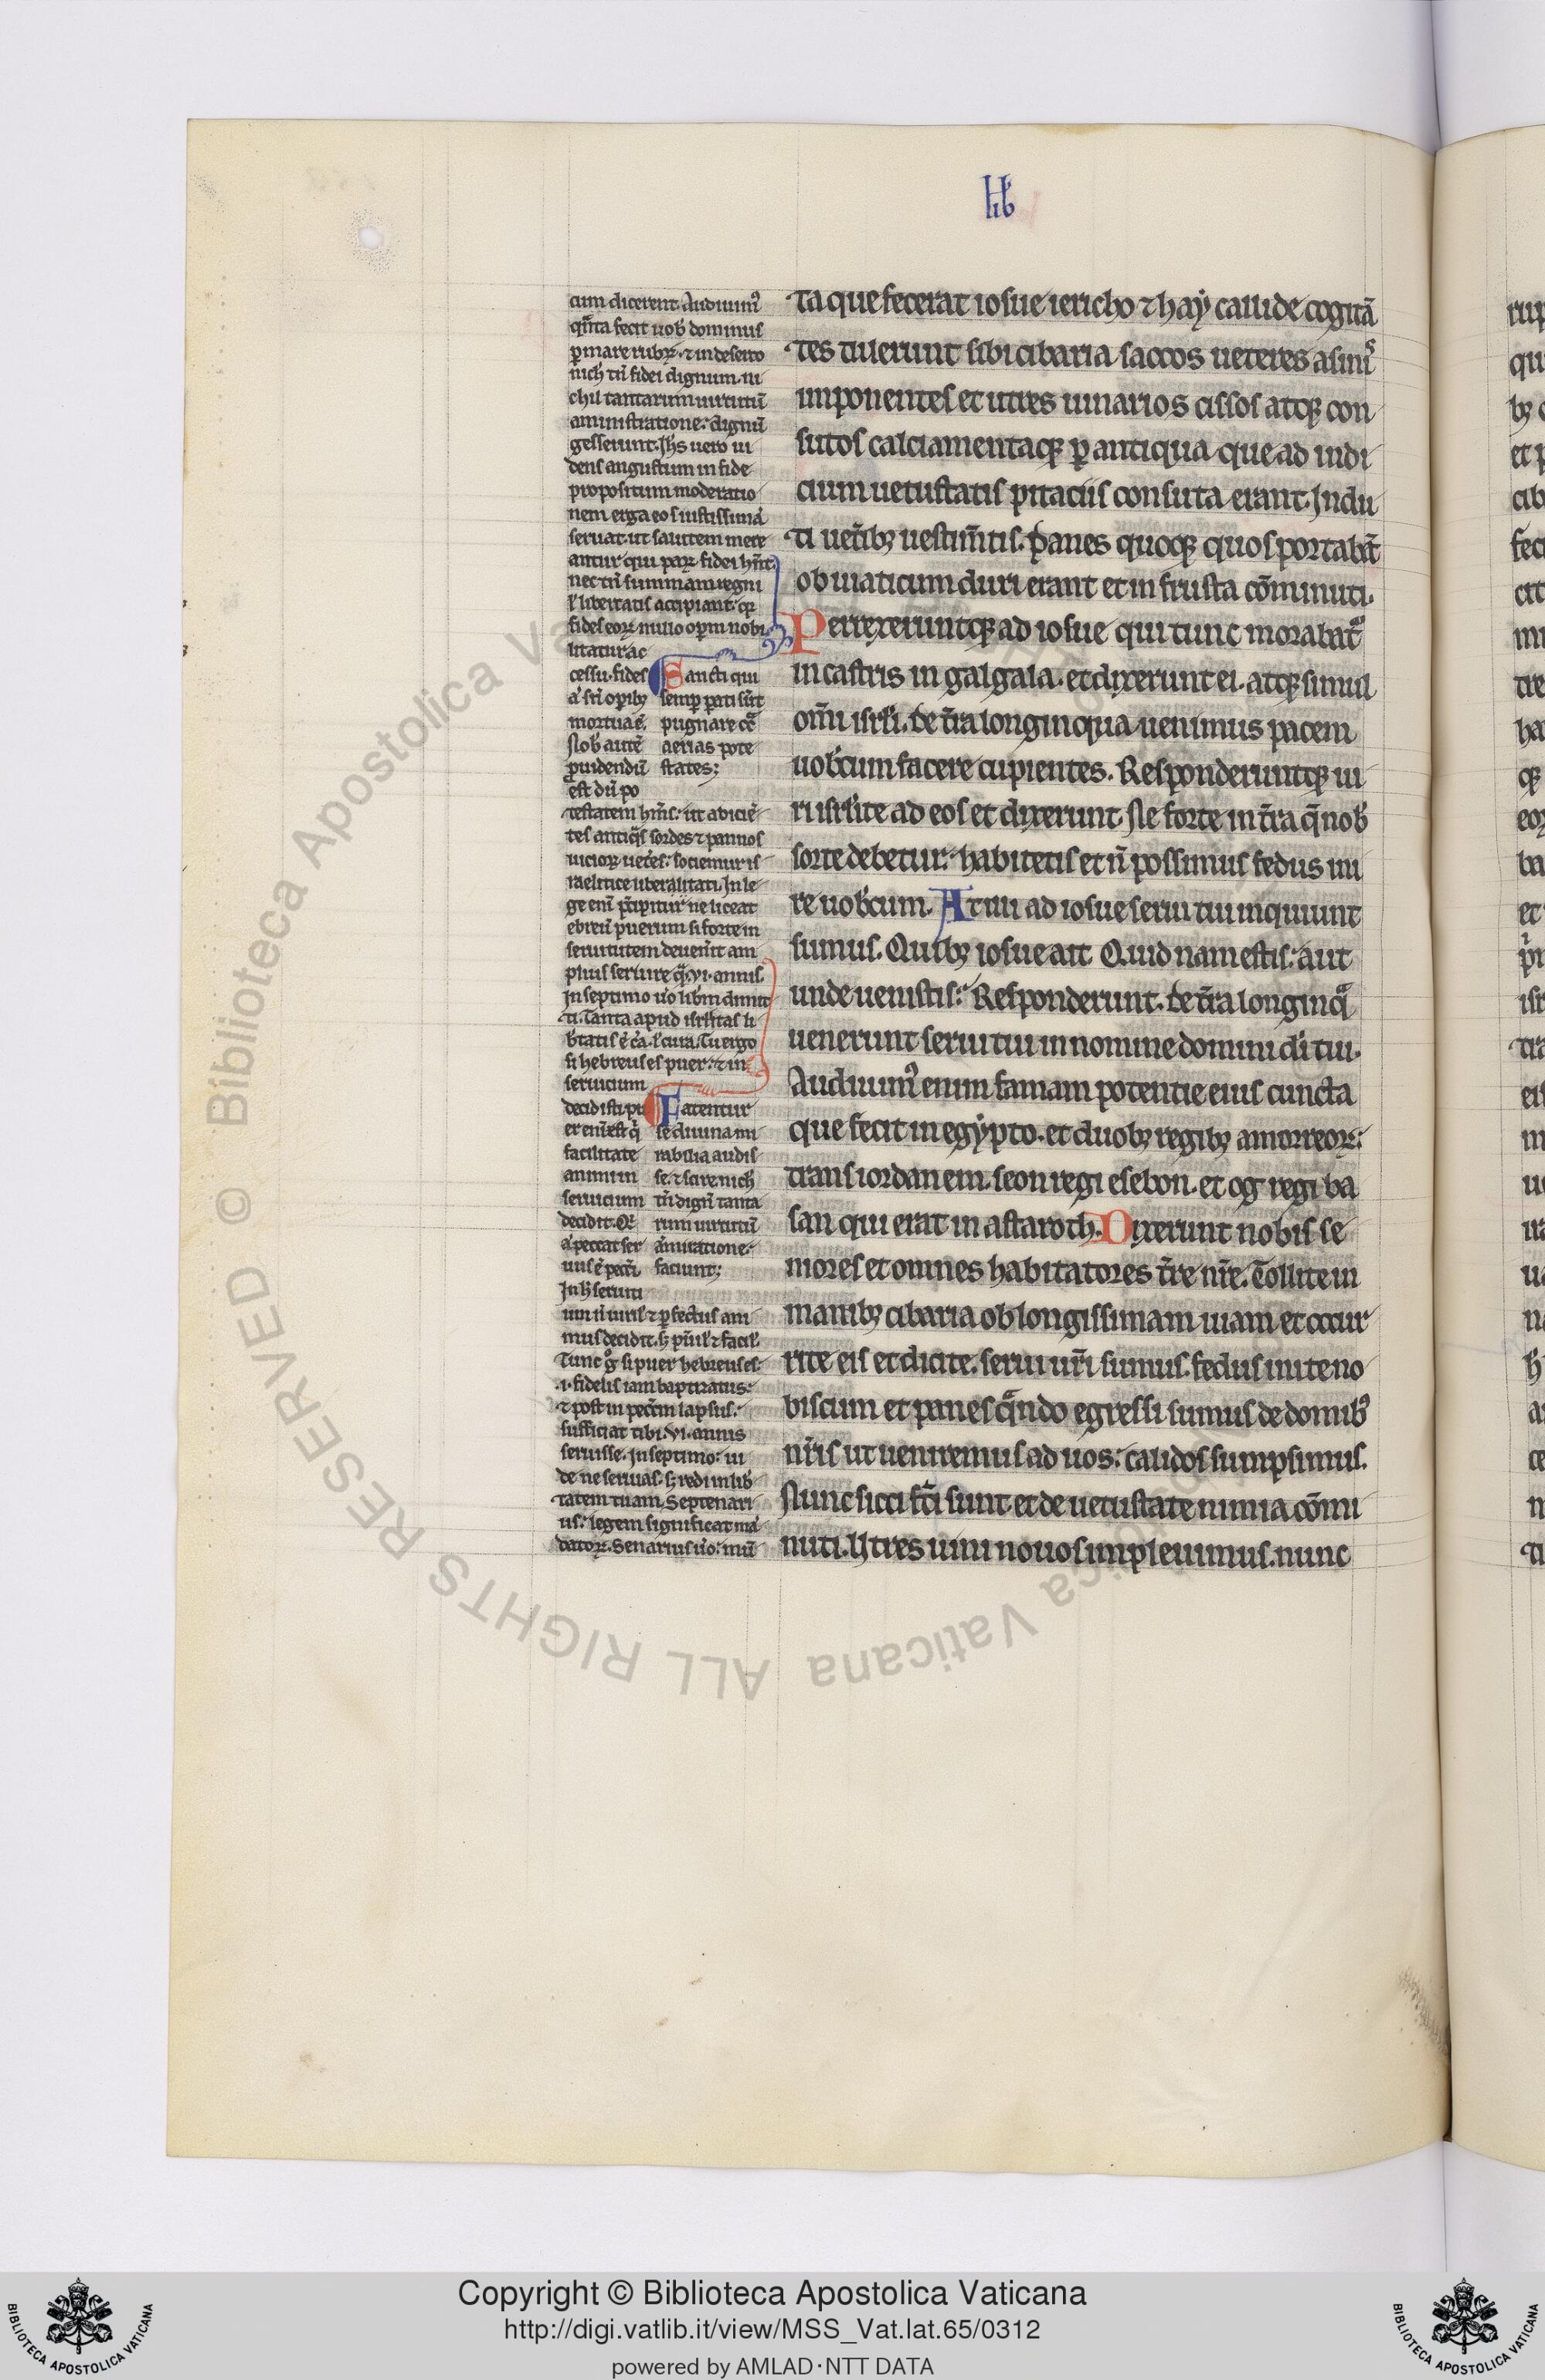 lib
cum dicerent. Audiuim⁹
q̄nta fecit uob̵ dominus
ꝑ mare rubꝝ. ⁊ in deserto
nich̵ tn̄ fidei dignum. ni
chil tantarum uirtutū
aministratione: dignū
gesserunt. Jhs uero ui
dens angustum in fide
propositum moderatio
nem erga eos iustissimā
seruat. ut salutem mere
antur qui parꝝ fidei hn̄t.
nec tn̄ summam regni
l̵ libertatis accipiant: qꝛ
fides eoꝝ nullo oꝑum nobi
litatur ac
cessu. fides
a̛ sn̄ oꝑibꝫ
mortua ē.
Nob̵ autē
ꝓuidendū
est dū po
testatem hm̄s: ut abiciē
tes antiq̄s sordes ⁊ pannos
uicioꝝ ueteres: sociemur is
raelitice liberalitati. Jn le
ge enī p̄cipitur ne liceat
ebreū puerum si forte in
seruitutem deuenerit am
plius seruire q̄. vi. annis.
Jn septimo uo lib̵um dimit
ti. Tanta apud isrl̵itas li
b̵tatis ē cā. l̵ cura. Tu ergo
si hebreus es puer: ⁊ in
seruicium
decidisti pu
er enī est q̇
facilitate
animi in
seruicium
decidit. Qꝛ
a̛ peccat ser
uus ē pecc̄i
Jn h̵ seruici
um n̄ uirilˢ ⁊ ꝑfectus ani
mus decidit. s; pu̅il̵ ⁊ facil̵.
Tunc g̊ si puer hebreus es:
.i. fidelis iam baptizatus:
⁊ post in pecc̄m lapsus:
sufficiat tibi .vi. annis
seruisse. Jn septimo: ui
de ne seruias. s; redi in lib̵
tatem tuam. Septenari
us: legem significat mā
datoꝝ. Senarius uo: mū
Sancti qui
semꝑ ꝑati sūt
pugnare cō
aerias pote
states;
Fatentur
se diuina mi
rabilia audis
se. ⁊ scire nich̵
tn̄ dignū tanta
rum uirtutū
amiratione:
faciunt;
ta que fecerat iosue iericho ⁊ haẏ callide cogitā
tes tulerunt sibi cibaria saccos ueteres asinis
imponentes et utres uinarios cissos atqꝫ con
sutos calciamentaqꝫ ꝑantiqua que ad indi
cium uetustatis pitaciis consuta erant. Jndu
ti uet̄ibꝫ uestim̄tis. Panes quoqꝫ quos portabāt
ob uiaticum duri erant et in frusta cōminuti.
Perrexeruntqꝫ ad iosue qui tunc morabatᷣ
in castris in galgala. et dixerunt ei. atqꝫ simul
om̄i isrl̵i. de t̄ra longinqua uenimus pacem
uob̵cum facere cupientes. Responderuntqꝫ ui
ri isrl̵ite ad eos et dixerunt. Ne forte in t̄ra q̄ nob̵
sorte debetur: habitetis et n̄ possimus fedus ini
re uob̵cum. At illi ad iosue serui tui inquiunt
sumus. Quibꝫ iosue ait. Quid nam estis: aut
unde uenistis: Responderunt. de t̄ra longinq̄
uenerunt serui tui in nomine domini dī tui.
Audiuim⁹ enim famam potentie eius cuncta
que fecit in egẏpto. et duobꝫ regibꝫ amorreoꝝ:
trans iordanem. seon regi esebon. et og regi ba
san qui erat in astaroth. Dixerunt nobis se
niores et omnes habitatores t̄re nr̄e. Tollite in
manibꝫ cibaria ob longissimam uiam et occur
rite eis et dicite. serui ur̄i sumus. fedus inite no
biscum et panes q̄ndo egressi sumus de domib⁹
nr̄is ut ueniremus ad uos: calidos sumpsimus.
Nunc sicci fc̄i sunt et de uetustate nimia cōmi
nuti. Utres uini nouos impleuimus. nunc
© Biblioteca Apostolica Vaticana ALL RIGHTS RESERVED
Copyright © Biblioteca Apostolica Vaticana
http://digi.vatlib.it/view/MSS_Vat.lat.65/0312
powered by AMLAD·NTT DATA
BIBLIOTECA APOSTOLICA VATICANA
BIBLIOTECA APOSTOLICA VATICANA